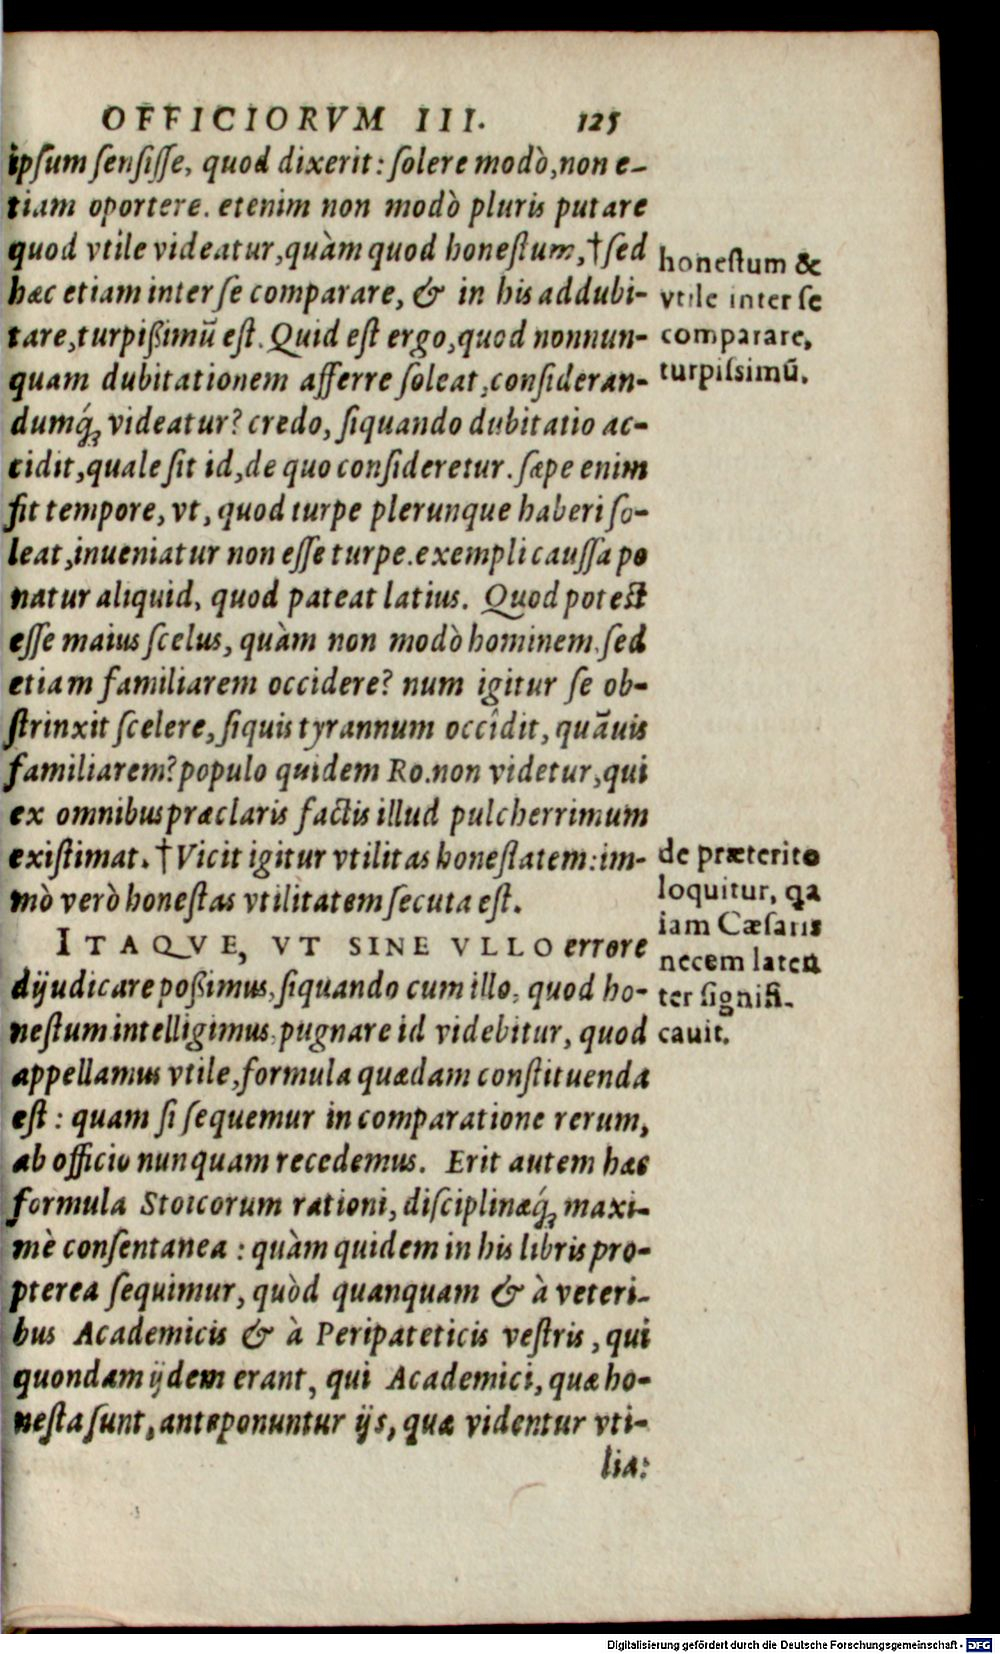 OFFICIORVM III. 125
ipsum sensisse, quod dixerit: solere modò, non e-
tiam oportere. etenim non modò pluris putare
quod vtile videatur, quàm quod honestum, † sed
hæc etiam inter se comparare, & in his addubi-
tare, turpißimū est. Quid est ergo, quod nonnun-
quam dubitationem afferre soleat, consideran-
dumq́ꝫ videatur? credo, siquando dubitatio ac-
cidit, quale sit id, de quo consideretur. sæpe enim
fit tempore, vt, quod turpe plerunque haberi so-
leat, inueniatur non esse turpe. exempli caussa po
natur aliquid, quod pateat latius. Quod potest
esse maius scelus, quàm non modò hominem, sed
etiam familiarem occidere? num igitur se ob-
strinxit scelere, siquis tyrannum occîdit, quāuis
familiarem? populo quidem Ro. non videtur, qui
ex omnibus præclaris factis illud pulcherrimum
existimat. † Vicit igitur vtilitas honestatem: im-
mò verò honestas vtilitatem secuta est.
ITAQVE, VT SINE VLLO errore
dijudicare poßimus, siquando cum illo, quod ho-
nestum intelligimus, pugnare id videbitur, quod
appellamus vtile, formula quædam constituenda
est: quam si sequemur in comparatione rerum,
ab officio nunquam recedemus. Erit autem hæc
formula Stoicorum rationi, disciplinæq́ꝫ maxi-
mè consentanea: quàm quidem in his libris pro-
pterea sequimur, quòd quanquam & à veteri-
bus Academicis & à Peripateticis vestris, qui
quondam ijdem erant, qui Academici, quæ ho-
nesta sunt, anteponuntur ijs, quæ videntur vti-
lia:
honestum &
vtile inter se
comparare,
turpissimū.
de præterito
loquitur, qa
iam Cæsaris
necem laten
ter signifi-
cauit.
Digitalisierung gefördert durch die Deutsche Forschungsgemeinschaft - DFG